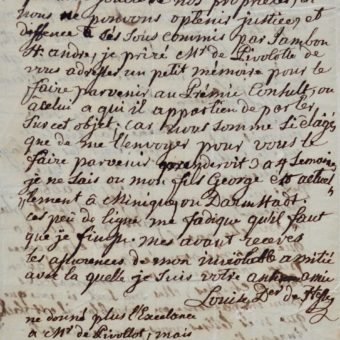 de nos proprietés,
nous ne pouvons optenir justice, et
deffence de les sous commis par Jambon
St andré, je prîré Mr de Livolotte de
vous adresser un petit mémoire pour le
faire parvenir au Prémie Consult, ou
acelui a qui il appartien de parler
sur cet objet. car nous somme si elagé
que de me l'envoyer pour vous le
faire parvenir prendervit 3 a 4 semaines
je ne sais ou mon fils George est actuel
lement a Minique, ou Darmstadt.
ces peu de ligne me fadique qu'il faut
que je finisse. mes avant recevés
les assurences de mon inviolable amitié
avec la quelle je suis votre amie
Louise Der de Hesse
ne donné plus l'Excelence
a Mr de Livollot, mais